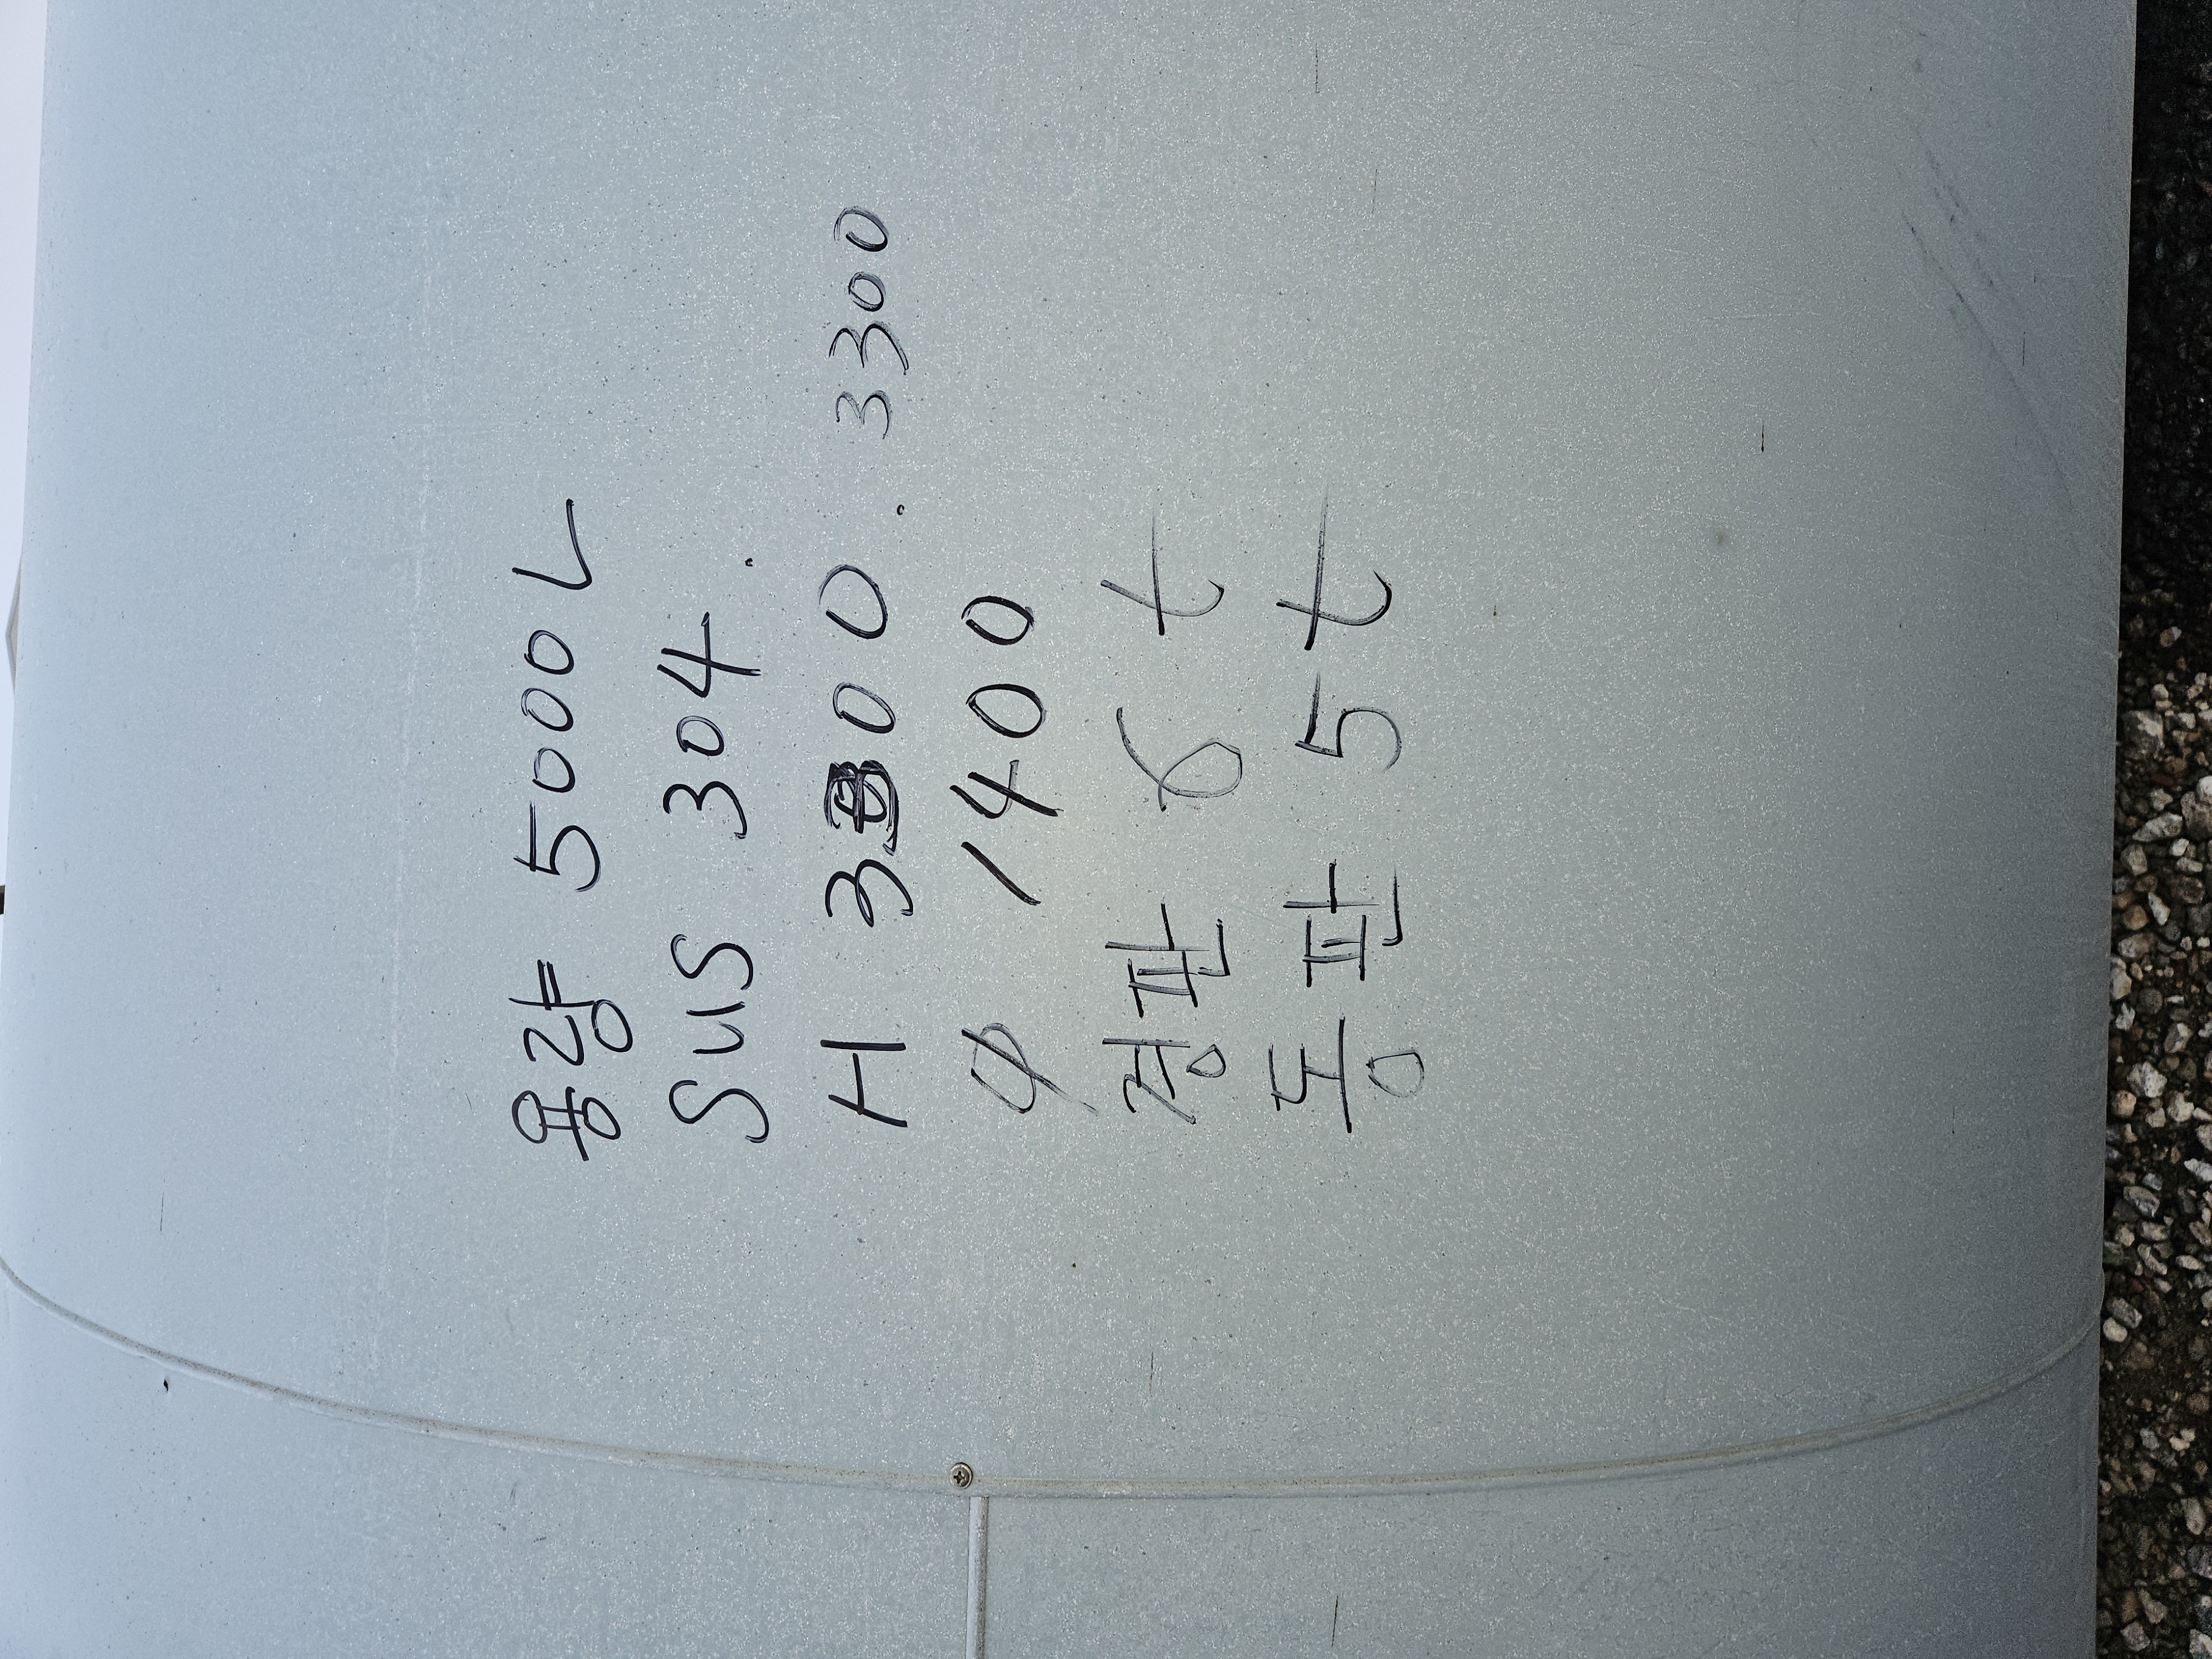 용량 5000L
SUS 304.
H 3300. 3300
φ 1400
경판 6t
동판 5t